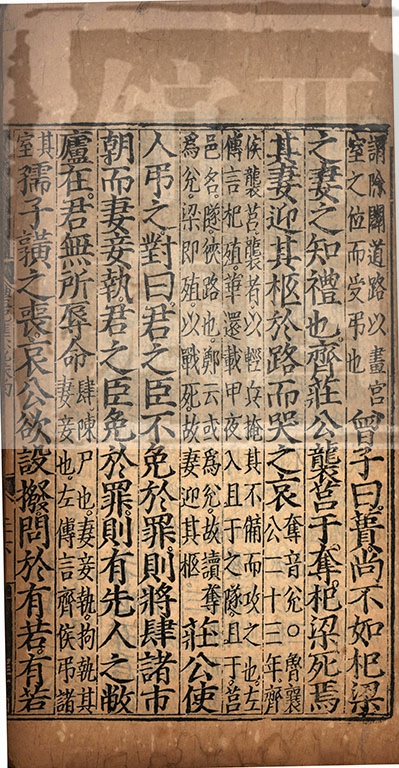 謂除闢道路以畫宮
室之位而受弔也
曾子曰蕢尚不如杞梁
之妻之知禮也齊莊公襲莒于奪杞梁死焉
其妻迎其柩於路而哭之哀
奪音兊○魯襄
公二十三年齊
侯襲莒襲者以輕兵掩其不備而攻之也左
傳言杞殖華還載甲夜入且于之隧且于莒
邑名隧狹路也鄭云或為兊故讀奪
為兊梁即殖以戰死故妻迎其柩
莊公使
人弔之對曰君之臣不免於罪則將肆諸市
朝而妻妾執君之臣免於罪則有先人之敝
廬在君無所辱命
肆陳尸也妻妾執拘執其
妻妾也左傳言齊侯弔諸
其
室
孺子䵍之喪哀公欲設撥問於有若有若